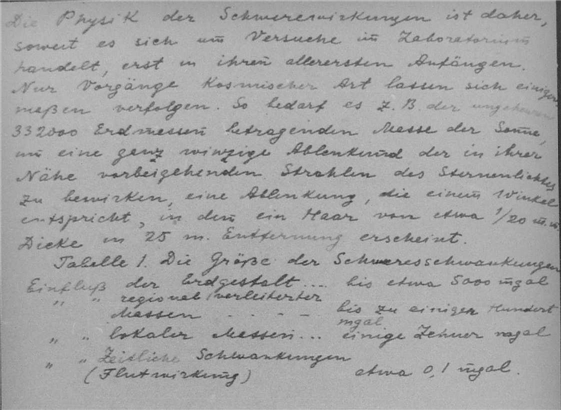 Die Physik der Schwerewirkungen ist daher,
soweit es sich um Versuche im Laboratorium
handelt, erst in ihren allerersten Anfängen.
Nur Vorgänge kosmischer Art lassen sich einiger
maßen verfolgen. So bedarf es z. B. der ungeheuren
332000 Erdmessen betragenden Masse der Sonne,
um eine ganz winzige Ablenkund der in ihrer
Nähe vorbeigehenden Strahlen des Sternenlichtes
zu bewirken, eine Ablenkung, die einem Winkel
entspricht, in dem ein Haar von etwa 1/20 m.m.
Dicke in 25 m. Entfernung erscheint.
Tabelle 1. Die Größe der Schweresschwankungen
Einfluß der Erdgestalt... bis etwa 5000 mgal
" " regional verleiterter
Massen - - - - bis zu einiger Hundert
mgal.
" " lokaler Massen... einige Zehner mgal
" " Zeitliche Schwankungen
(Flutwirkung) etwa 0,1 mgal.